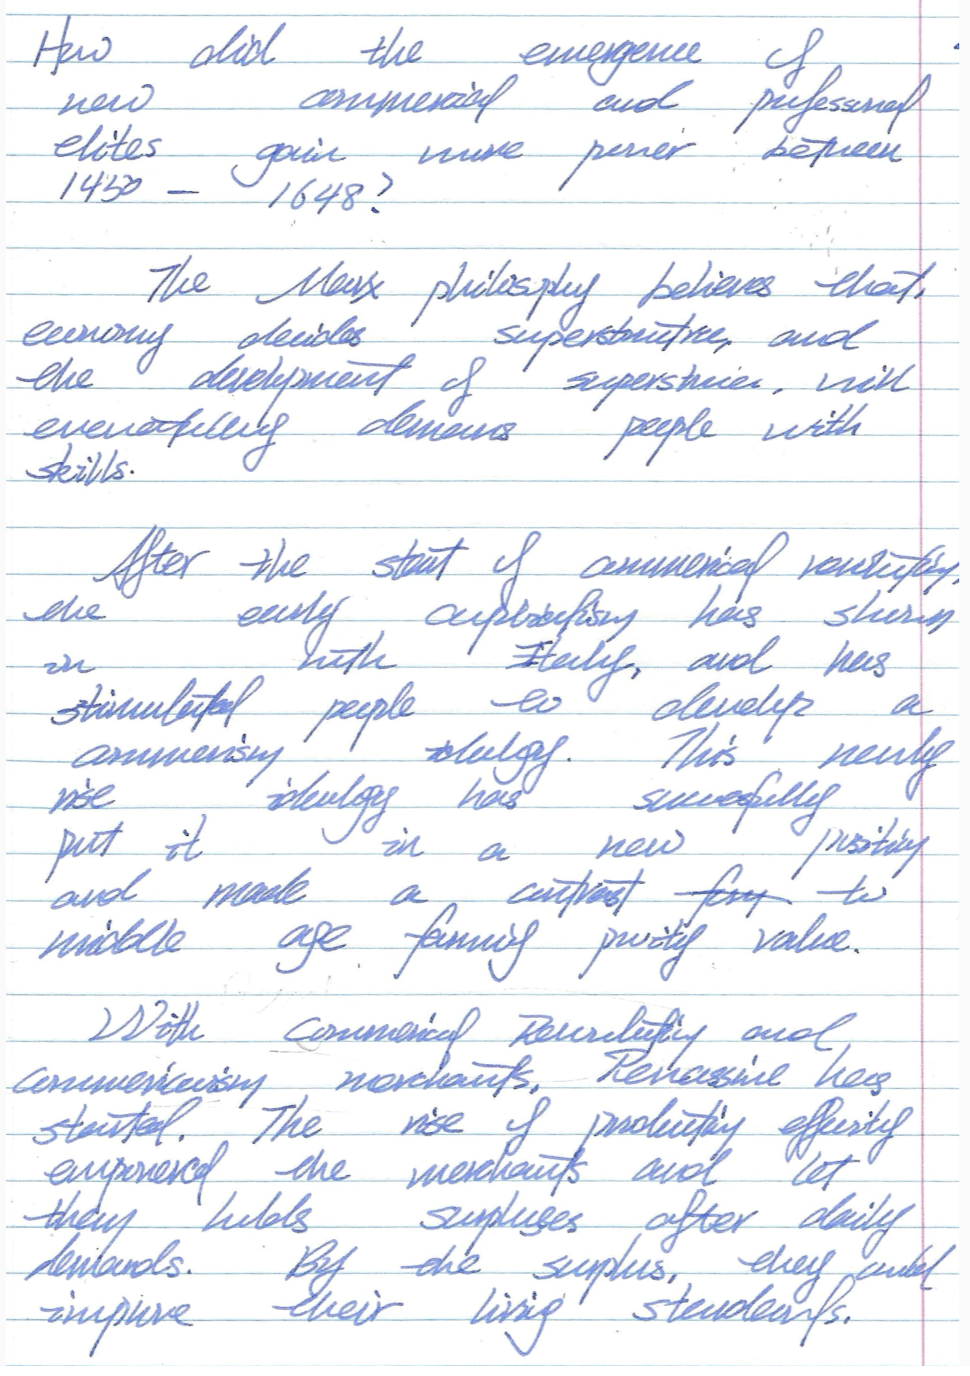 How did the emergence of
new commercial and professional
elites gain more power between
1450 - 1648?
The Marx philosophy believes that,
economy decides superstructure, and
the development of superstructure, will
eventually demans people with
skills.
After the start of commerical revolution,
the early capitalism has shown
in north Italy, and has
stimulated people to develop a
commerism ideology. This newly
rise ideology has sucessfully
put it in a new position
and made a contrast to
middle age farming purity value.
With Commerical Revolution and
commericalism merchants, Renassine has
started. The rise of production
empowered the merchants and let
they holds surpluses after daily
demands. By the surplus, they could
improve their living standards.